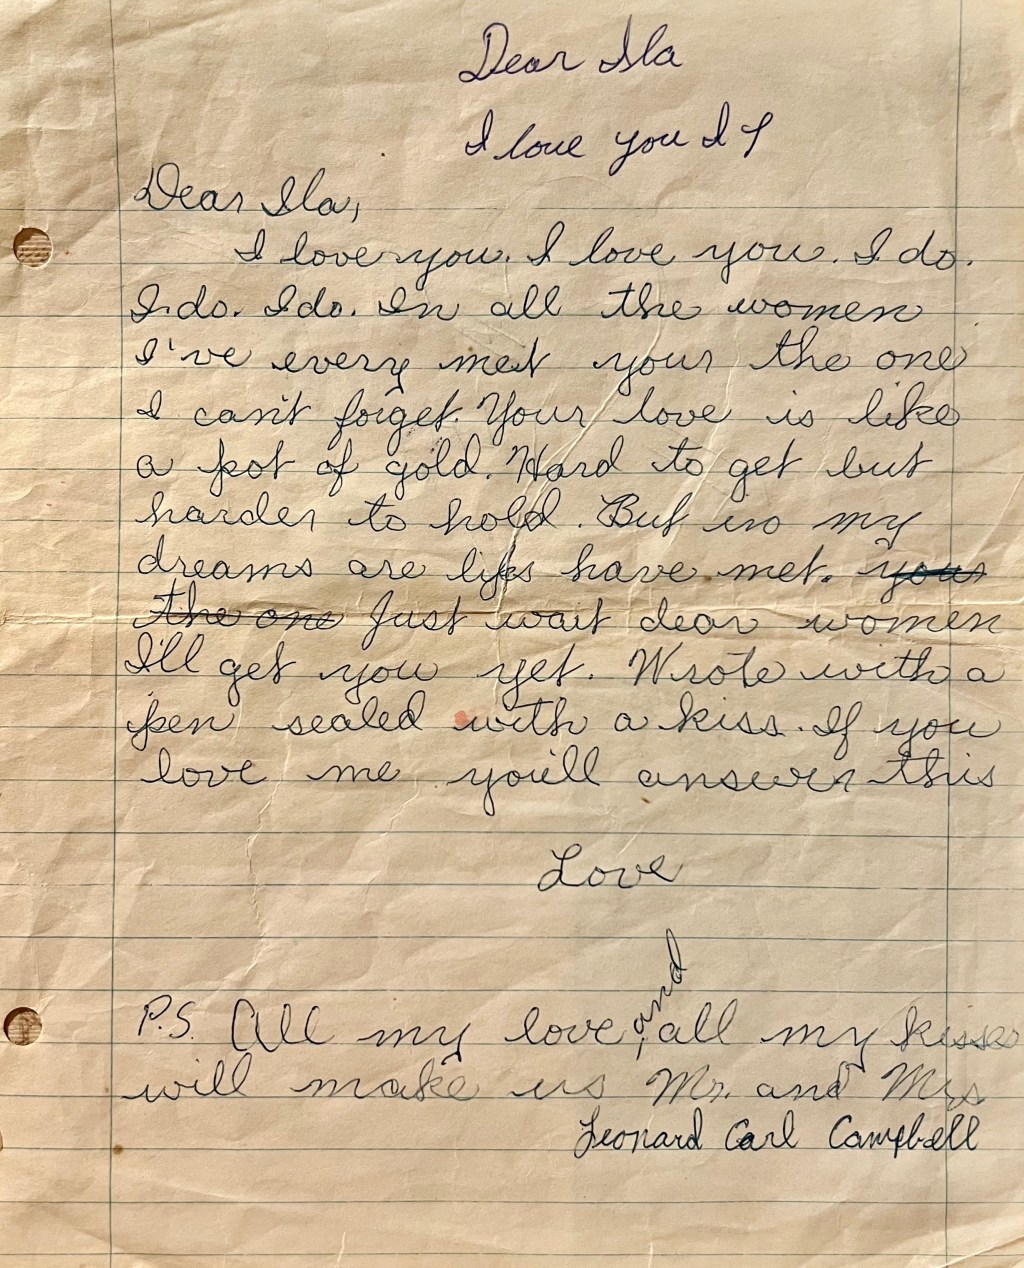 Dear Ila
I love you I
Dear Ila,
I love you. I love you. I do.
I do. I do. In all the women
I've every met your the one
I can't forget. Your love is like
a pot of gold. Hard to get but
harder to hold. But in my
dreams are lifes have met. your
the one Just wait dear women
I'll get you yet. Wrote with a
pen sealed with a kiss. If you
love me you'll answer this
Love
P.S. All my love, and all my kisses
will make us Mr. and Mrs
Leonard Carl Campbell